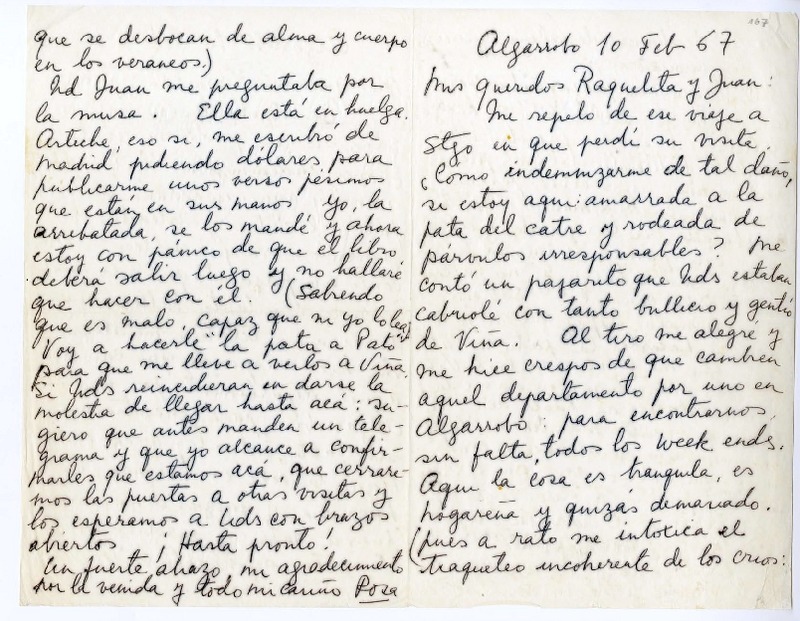 167
Algarrobo 10 Feb 67
Mis queridos Raquelita y Juan:
Me repelo de ese viaje a
Stgo en que perdí su visita.
¿Como indemnizarme de tal daño,
si estoy aqui: amarrada a la
pata del catre y rodeada de
párvulos irresponsables? Me
contó un pajarito que Uds estaban
cabriolé con tanto bullicio y gentío
de Viña. Al tiro me alegré y
me hice crespos de que cambien
aquel departamento por uno en
Algarrobo: para encontrarnos,
sin falta, todos los week ends.
Aqui la cosa es tranquila, es
hogareña y quizás demasiado.
(pues a rato me intoxica el
traqueteo incoherente de los crios:
que se desbocan de alma y cuerpo
en los veraneos.)
Ud Juan me preguntaba por
la musa. Ella está en huelga.
Arteche, eso si, me escribió de
Madrid pidiendo dólares para
publicarme unos versos pésimos
que están en sus manos yo, la
arrebatada, se los mandé y ahora
estoy con pánico de que el libro
deberá salir luego y no hallaré
que hacer con él. (Sabiendo
que es malo, capaz que ni yo lo lea)
Voy a hacerle la pata a Pato
para que me lleve a verlos a Viña.
Si Uds reincidieran en darse la
molestia de llegar hasta acá: su-
giero que antes manden un tele-
grama y que yo alcance a confir-
marles que estamos acá, que cerrare-
mos las puertas a otras visitas y
los esperamos a Uds con brazos
abiertos ¡Hasta pronto!
Un fuerte abrazo mi agradecimiento
por la venida y todo mi cariño Rosa